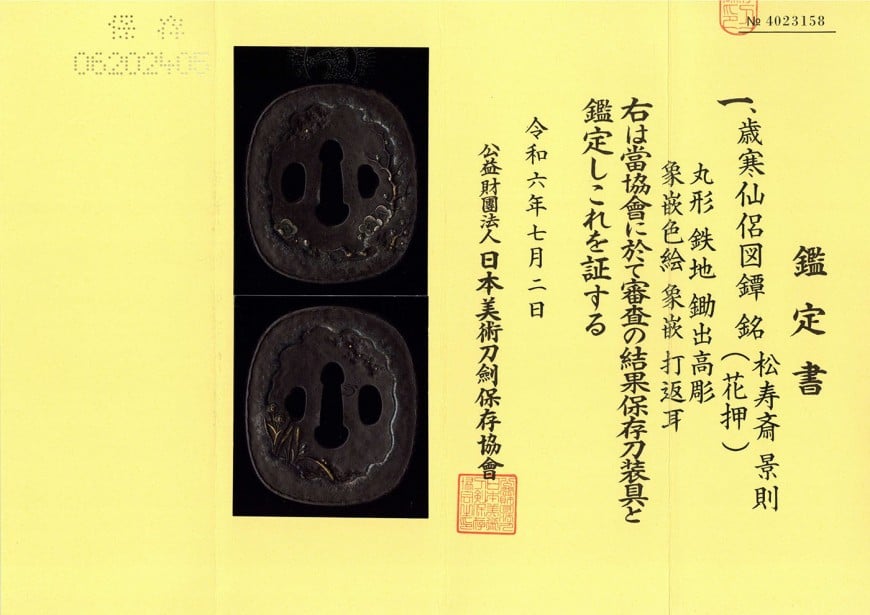 № 4023158
鑑定書
一、歳寒仙侶図鐔 銘 松寿斎 景則
(花押)
丸形 鉄地 鋤出高彫
象嵌色絵 象嵌 打返耳
右は當協會に於て審査の結果保存刀装具と
鑑定しこれを証する
令和六年七月二日
公益財團法人 日本美術刀劍保存協會
保存